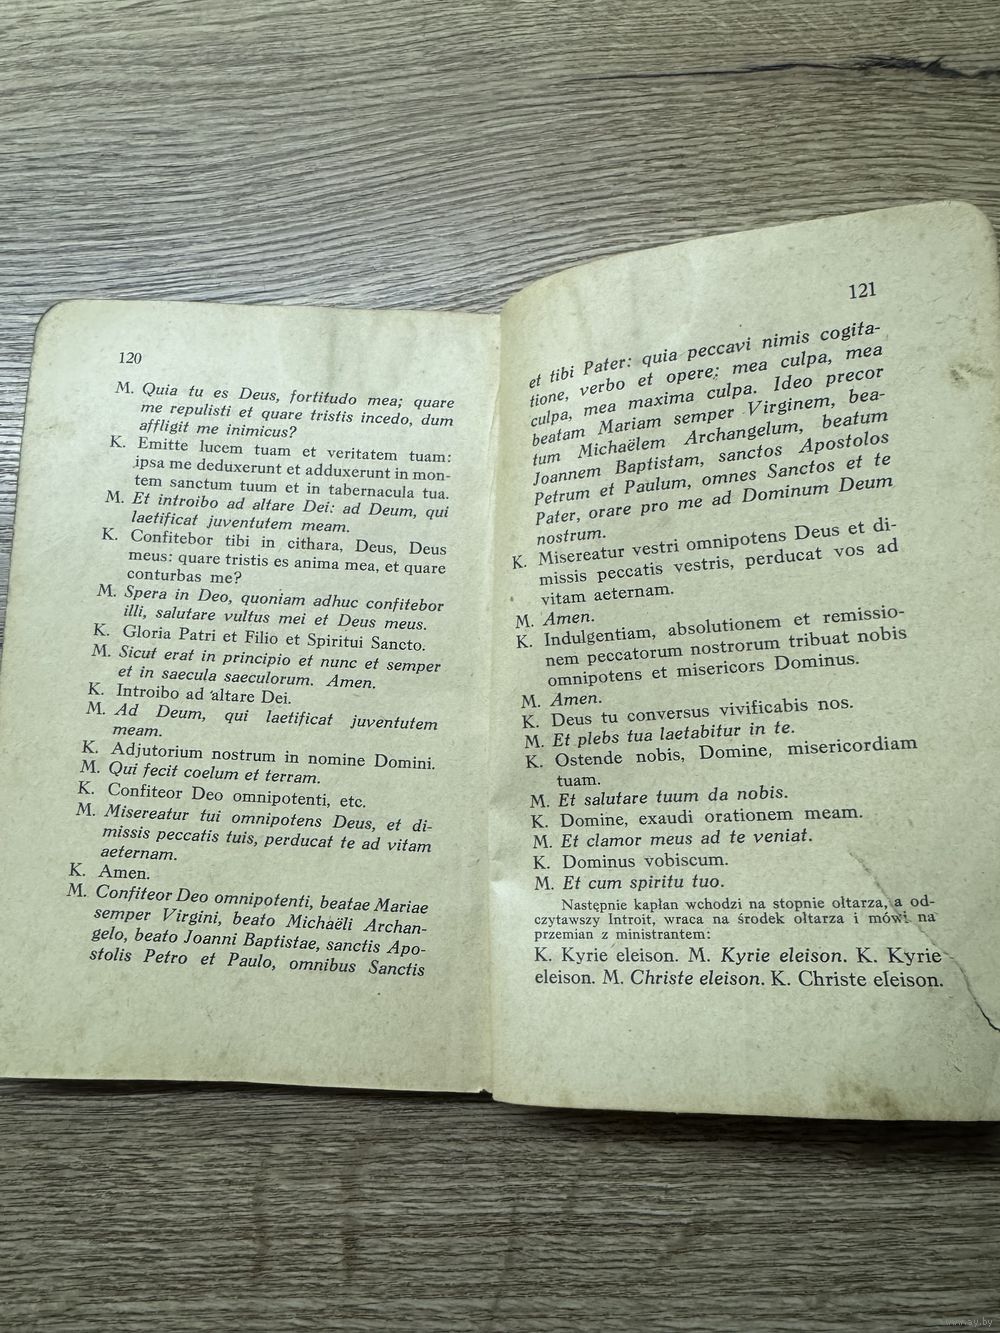 120
M. Quia tu es Deus, fortitudo mea; quare
me repulisti et quare tristis incedo, dum
affligit me inimicus?
K. Emitte lucem tuam et veritatem tuam:
ipsa me deduxerunt et adduxerunt in mon-
tem sanctum tuum et in tabernacula tua.
M. Et introibo ad altare Dei: ad Deum, qui
laetificat juventutem meam.
K. Confitebor tibi in cithara, Deus, Deus
meus: quare tristis es anima mea, et quare
conturbas me?
M. Spera in Deo, quoniam adhuc confitebor
illi, salutare vultus mei et Deus meus.
K. Gloria Patri et Filio et Spiritui Sancto.
M. Sicut erat in principio et nunc et semper
et in saecula saeculorum. Amen.
K. Introibo ad altare Dei.
M. Ad Deum, qui laetificat juventutem
meam.
K. Adjutorium nostrum in nomine Domini.
M. Qui fecit coelum et terram.
K. Confiteor Deo omnipotenti, etc.
M. Misereatur tui omnipotens Deus, et di-
missis peccatis tuis, perducat te ad vitam
aeternam.
K. Amen.
M. Confiteor Deo omnipotenti, beatae Mariae
semper Virgini, beato Michaëli Archan-
gelo, beato Joanni Baptistae, sanctis Apo-
stolis Petro et Paulo, omnibus Sanctis
121
et tibi Pater: quia peccavi nimis cogita-
tione, verbo et opere; mea culpa, mea
culpa, mea maxima culpa. Ideo precor
beatam Mariam semper Virginem, bea-
tum Michaëlem Archangelum, beatum
Joannem Baptistam, sanctos Apostolos
Petrum et Paulum, omnes Sanctos et te
Pater, orare pro me ad Dominum Deum
nostrum.
K. Misereatur vestri omnipotens Deus et di-
missis peccatis vestris, perducat vos ad
vitam aeternam.
M. Amen.
K. Indulgentiam, absolutionem et remissio-
nem peccatorum nostrorum tribuat nobis
omnipotens et misericors Dominus.
M. Amen.
K. Deus tu conversus vivificabis nos.
M. Et plebs tua laetabitur in te.
K. Ostende nobis, Domine, misericordiam
tuam.
M. Et salutare tuum da nobis.
K. Domine, exaudi orationem meam.
M. Et clamor meus ad te veniat.
K. Dominus vobiscum.
M. Et cum spiritu tuo.
Następnie kapłan wchodzi na stopnie ołtarza, a od-
czytawszy Introit, wraca na środek ołtarza i mówi na
przemian z ministrantem:
K. Kyrie eleison. M. Kyrie eleison. K. Kyrie
eleison. M. Christe eleison. K. Christe eleison.
www.ay.by